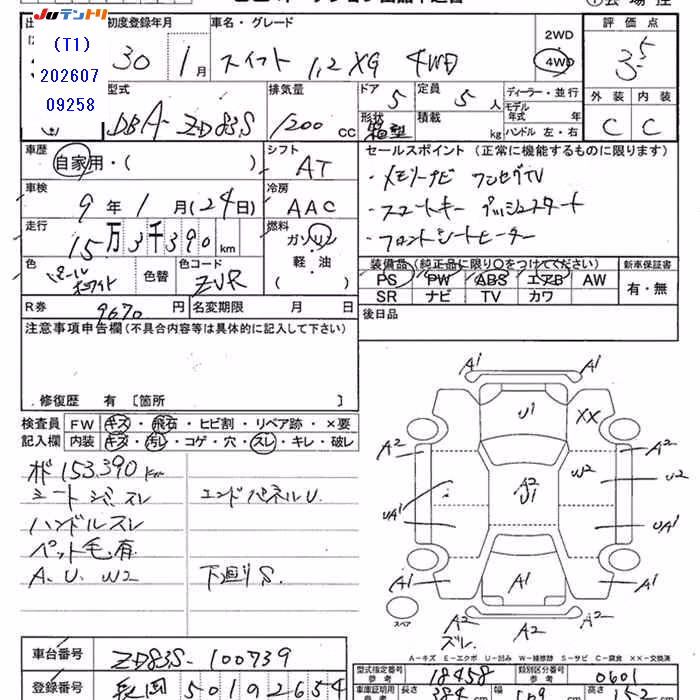 JUテントリ
(T1)
202607
09258
初度登録年月
車名・グレード
評価点
30年 1月
スイフト 1.2 XG 4WD
2WD
4WD
3.5
型式
排気量
ドア
定員
ディーラー・並行
外装
内装
DBA-ZD83S
1200 cc
5
5人
モデル年式 年
C
C
形状
箱型
積載 kg
ハンドル 左・右
車歴
自家用・( )
シフト
AT
セールスポイント(正常に機能するものに限ります)
・メモリーナビ ワンセグTV
車検
9年1月(24日)
冷房
AAC
・スマートキー プッシュスタート
走行
15万3千390km
燃料
ガソリン
軽・油
( )
・フロントシートヒーター
色
パールホワイト
色替
色コード
ZVR
装備品(純正品に限り○をつけてください)
新車保証書
PS
PW
ABS
エアB
AW
有・無
SR
ナビ
TV
カワ
R券
9670円
名変期限 月 日
後日品
注意事項申告欄(不具合内容等は具体的に記入して下さい)
修復歴 有 [箇所 ]
検査員記入欄
FW
キズ・飛石・ヒビ割・リペア跡・×要
内装
キズ・汚レ・コゲ・穴・スレ・キレ・破レ
153,390km
シート シミ スレ
エンドパネルU.
ハンドルスレ
ペット毛有
A. U. W2
下廻りS.
A1
A1
U1
XX
A2
A2
A2
U1
W2
UA1
UA1
A1
A1
A1
スペア
A2
スレ
A2
A2
A-キズ E-エクボ U-凹み W-補修跡 S-サビ C-腐食 ××-交換済
車台番号
ZD83S-100739
型式指定番号
参考
18458
類別区分番号
参考
0601
登録番号
長岡 501 92654
車庫証明用
参考
長さ
384cm
幅
高さ